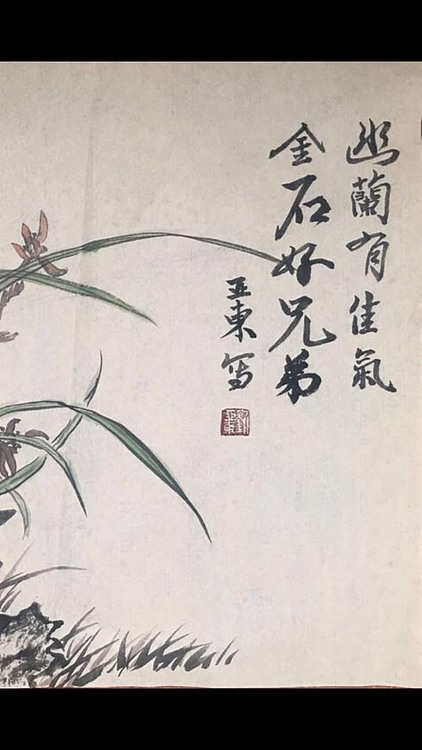 幽蘭有佳氣
金石好兄弟
亞東写